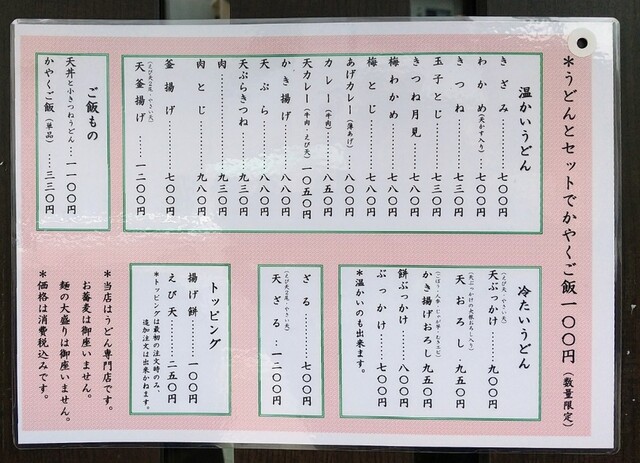 ＊うどんとセットでかやくご飯一〇〇円（数量限定）
温かいうどん
きざみ………七〇〇円
わかめ（天かす入り）……七〇〇円
きつね………七三〇円
玉子とじ………七三〇円
きつね月見……七八〇円
梅わかめ………七八〇円
梅とじ………七八〇円
あげカレー（薄あげ）…八〇〇円
カレー（牛肉）………八五〇円
天カレー（牛肉・えび天）一〇五〇円
かき揚げ………八八〇円
天ぷら………八八〇円
天ぷらきつね…九三〇円
肉………九三〇円
肉とじ………九八〇円
釜揚げ………七〇〇円
（えび天2尾・やさい天）
天釜揚げ…一二〇〇円
ご飯もの
天丼と小きつねうどん…一一〇〇円
かやくご飯（単品）…三三〇円
冷たいうどん
（えび天・やさい天）
天ぶっかけ……九〇〇円
（天ぶっかけの大根おろし入り）
天おろし．九五〇円
（ごぼう・人参・じゃが芋・むきエビ）
かき揚げおろし九五〇円
餅ぶっかけ……八〇〇円
ぶっかけ……七〇〇円
＊温かいのも出来ます。
ざる………七〇〇円
（えび天2尾・やさい天）
天ざる．一二〇〇円
トッピング
揚げ餅………一〇〇円
えび天………二五〇円
＊トッピングは最初の注文時のみ、
追加注文は出来かねます。
＊当店はうどん専門店です。
お蕎麦は御座いません。
麺の大盛りは御座いません。
＊価格は消費税込みです。